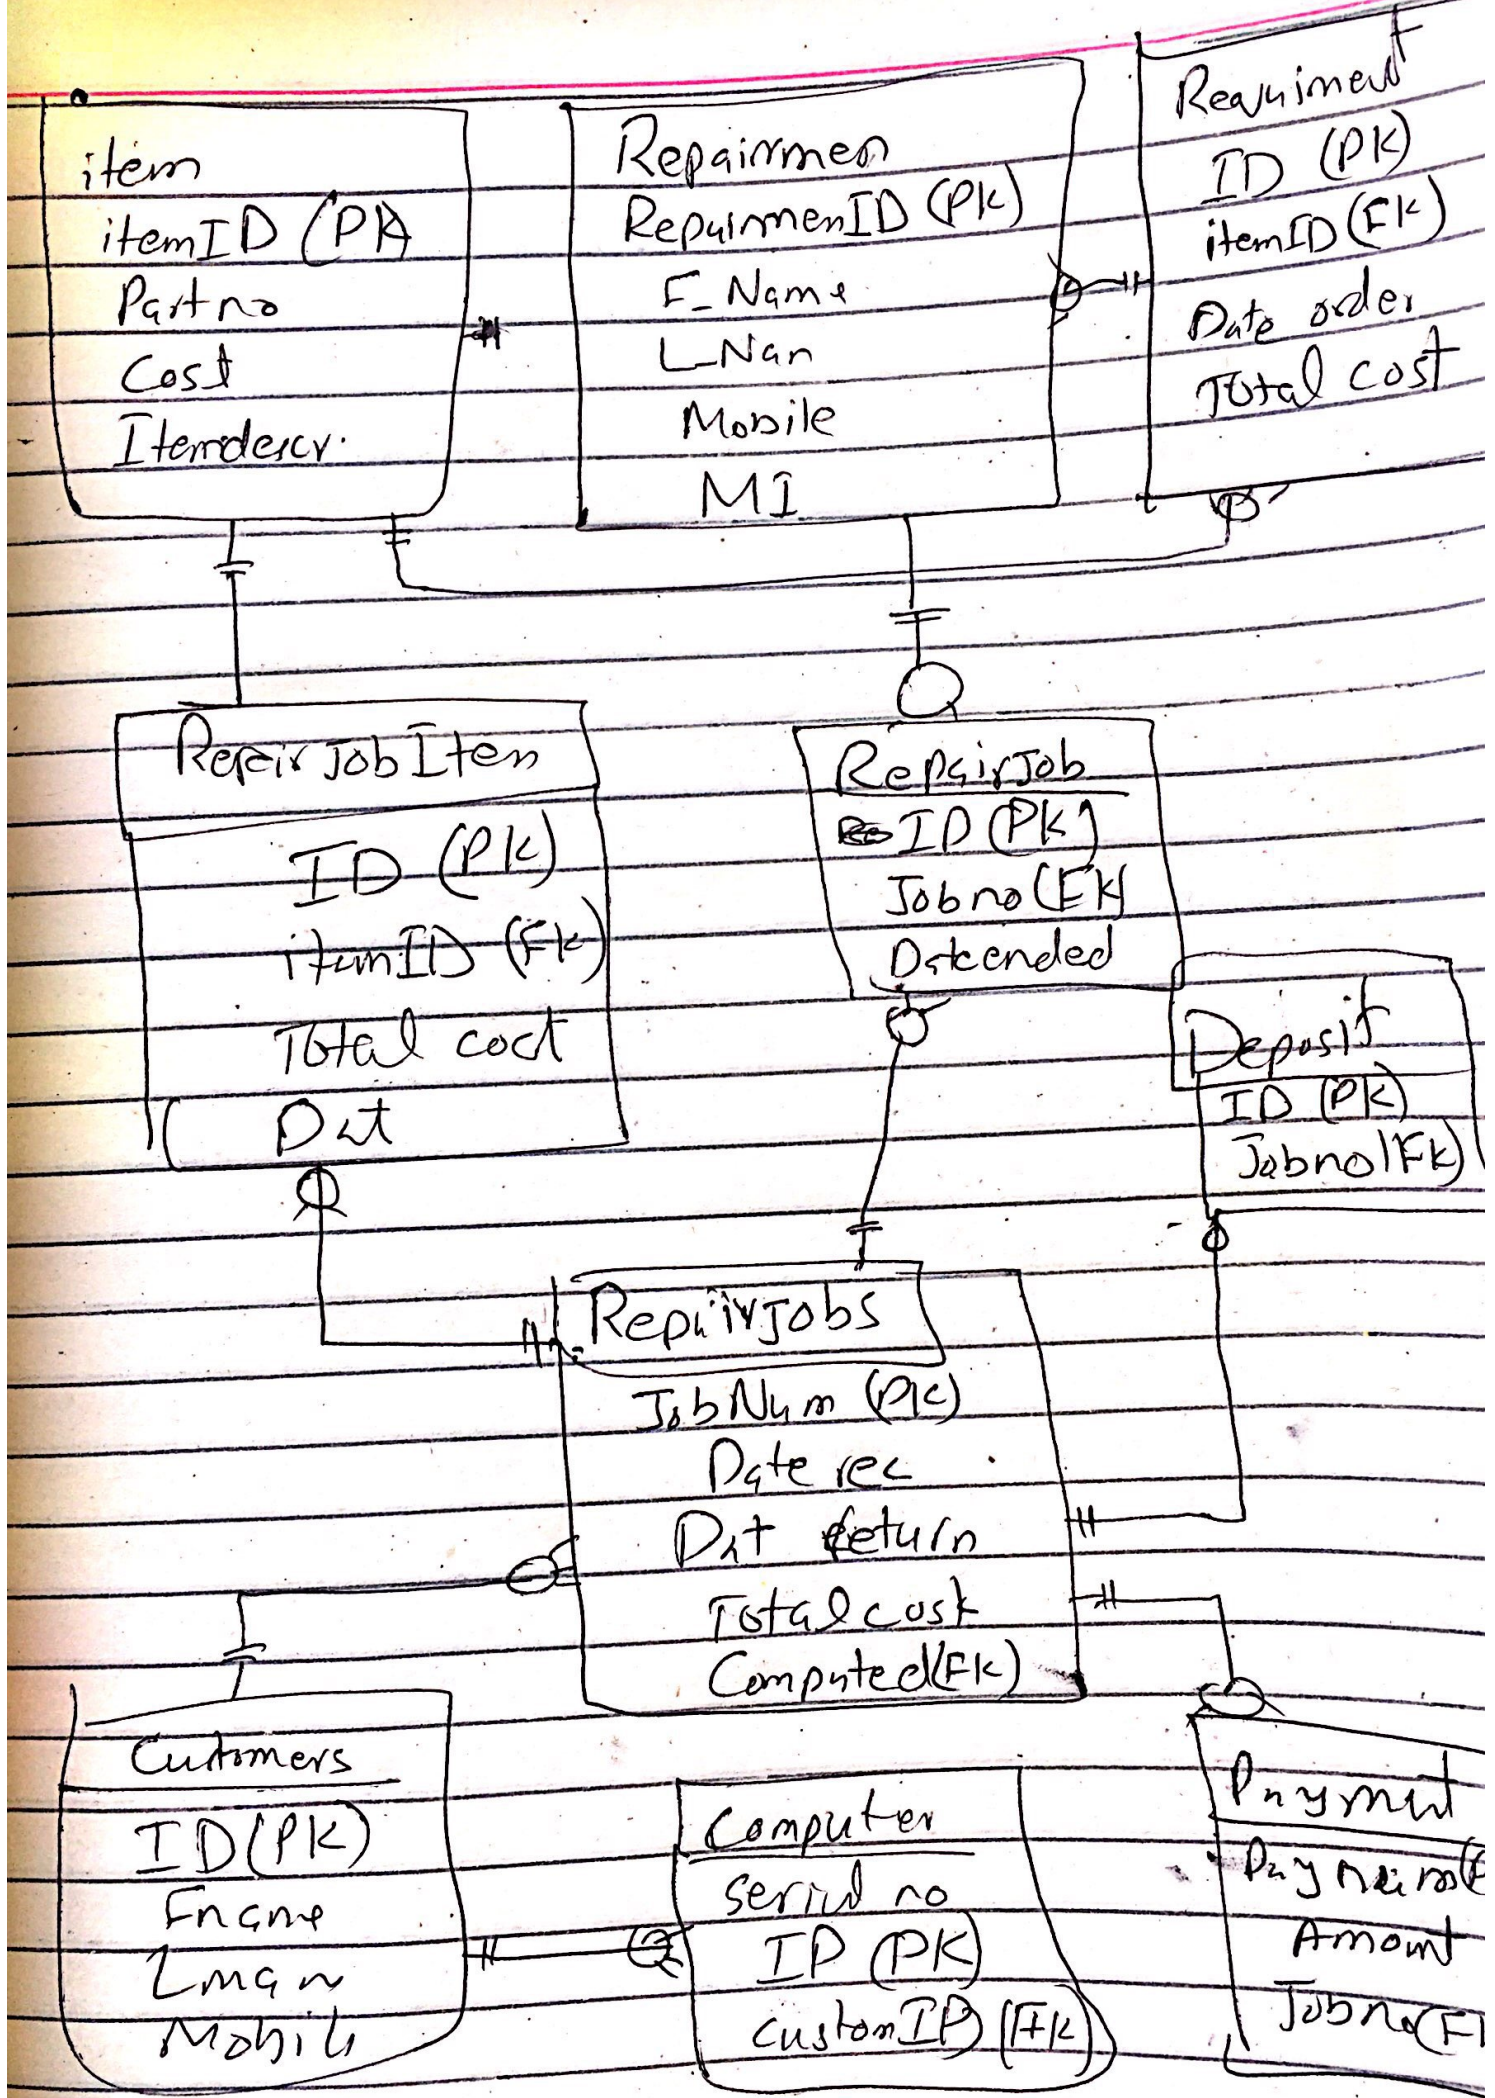 item
itemID (PK)
Partno
Cost
Itemdescr.
Repairmen
RepairmenID (PK)
F_Name
L_Nan
Mobile
MI
Reauiment
ID (PK)
itemID (FK)
Date order
Total cost
RepairJobItem
ID (PK)
itemID (FK)
Total coct
Dat
RepairJob
ID (PK)
Jobno (FK)
Dateended
Deposit
ID (PK)
Jobno (FK)
Repairjobs
JobNum (PK)
Date rec
Dat return
Total cost
Computed (FK)
Customers
ID (PK)
Fname
Lman
Mobile
Computer
serial no
ID (PK)
customID (FK)
Payment
Amount
Jobno (FK